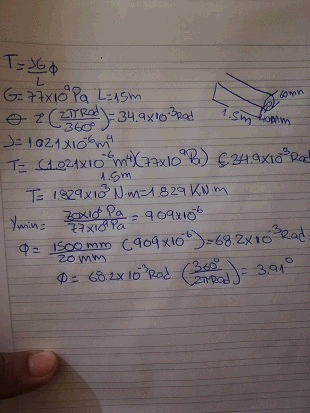 T = JG/L Φ
G = 77x10⁹Pa L = 1.5m
60mm
Θ 2(2πRad/360°) = 34.9x10⁻³Rad
1.5m 40mm
J = 1.021x10⁻⁶m⁴
T = (1.021x10⁻⁶m⁴)(77x10⁹P)/1.5m (34.9x10⁻³Rad
T = 1.829x10³N·m = 1.829KN·m
γmin = 70x10⁶Pa/77x10⁹Pa = 909x10⁻⁶
Φ = 1500mm/20mm (909x10⁻⁶) = 68.2x10⁻³Rad
Φ = 68.2x10⁻³Rad (360°/2πRad) = 3.91°